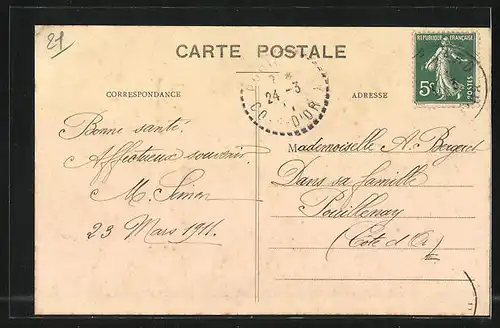 21
CARTE POSTALE
CORRESPONDANCE
ADRESSE
REPUBLIQUE FRANÇAISE
5c
POSTES
24 -3
COTE-D'OR
Bonne santé.
Affectueux souvenir.
M.
23 Mars 1911.
Mademoiselle A. Bergeret
Dans sa famille
Pouillenay
(Côte d'Or)